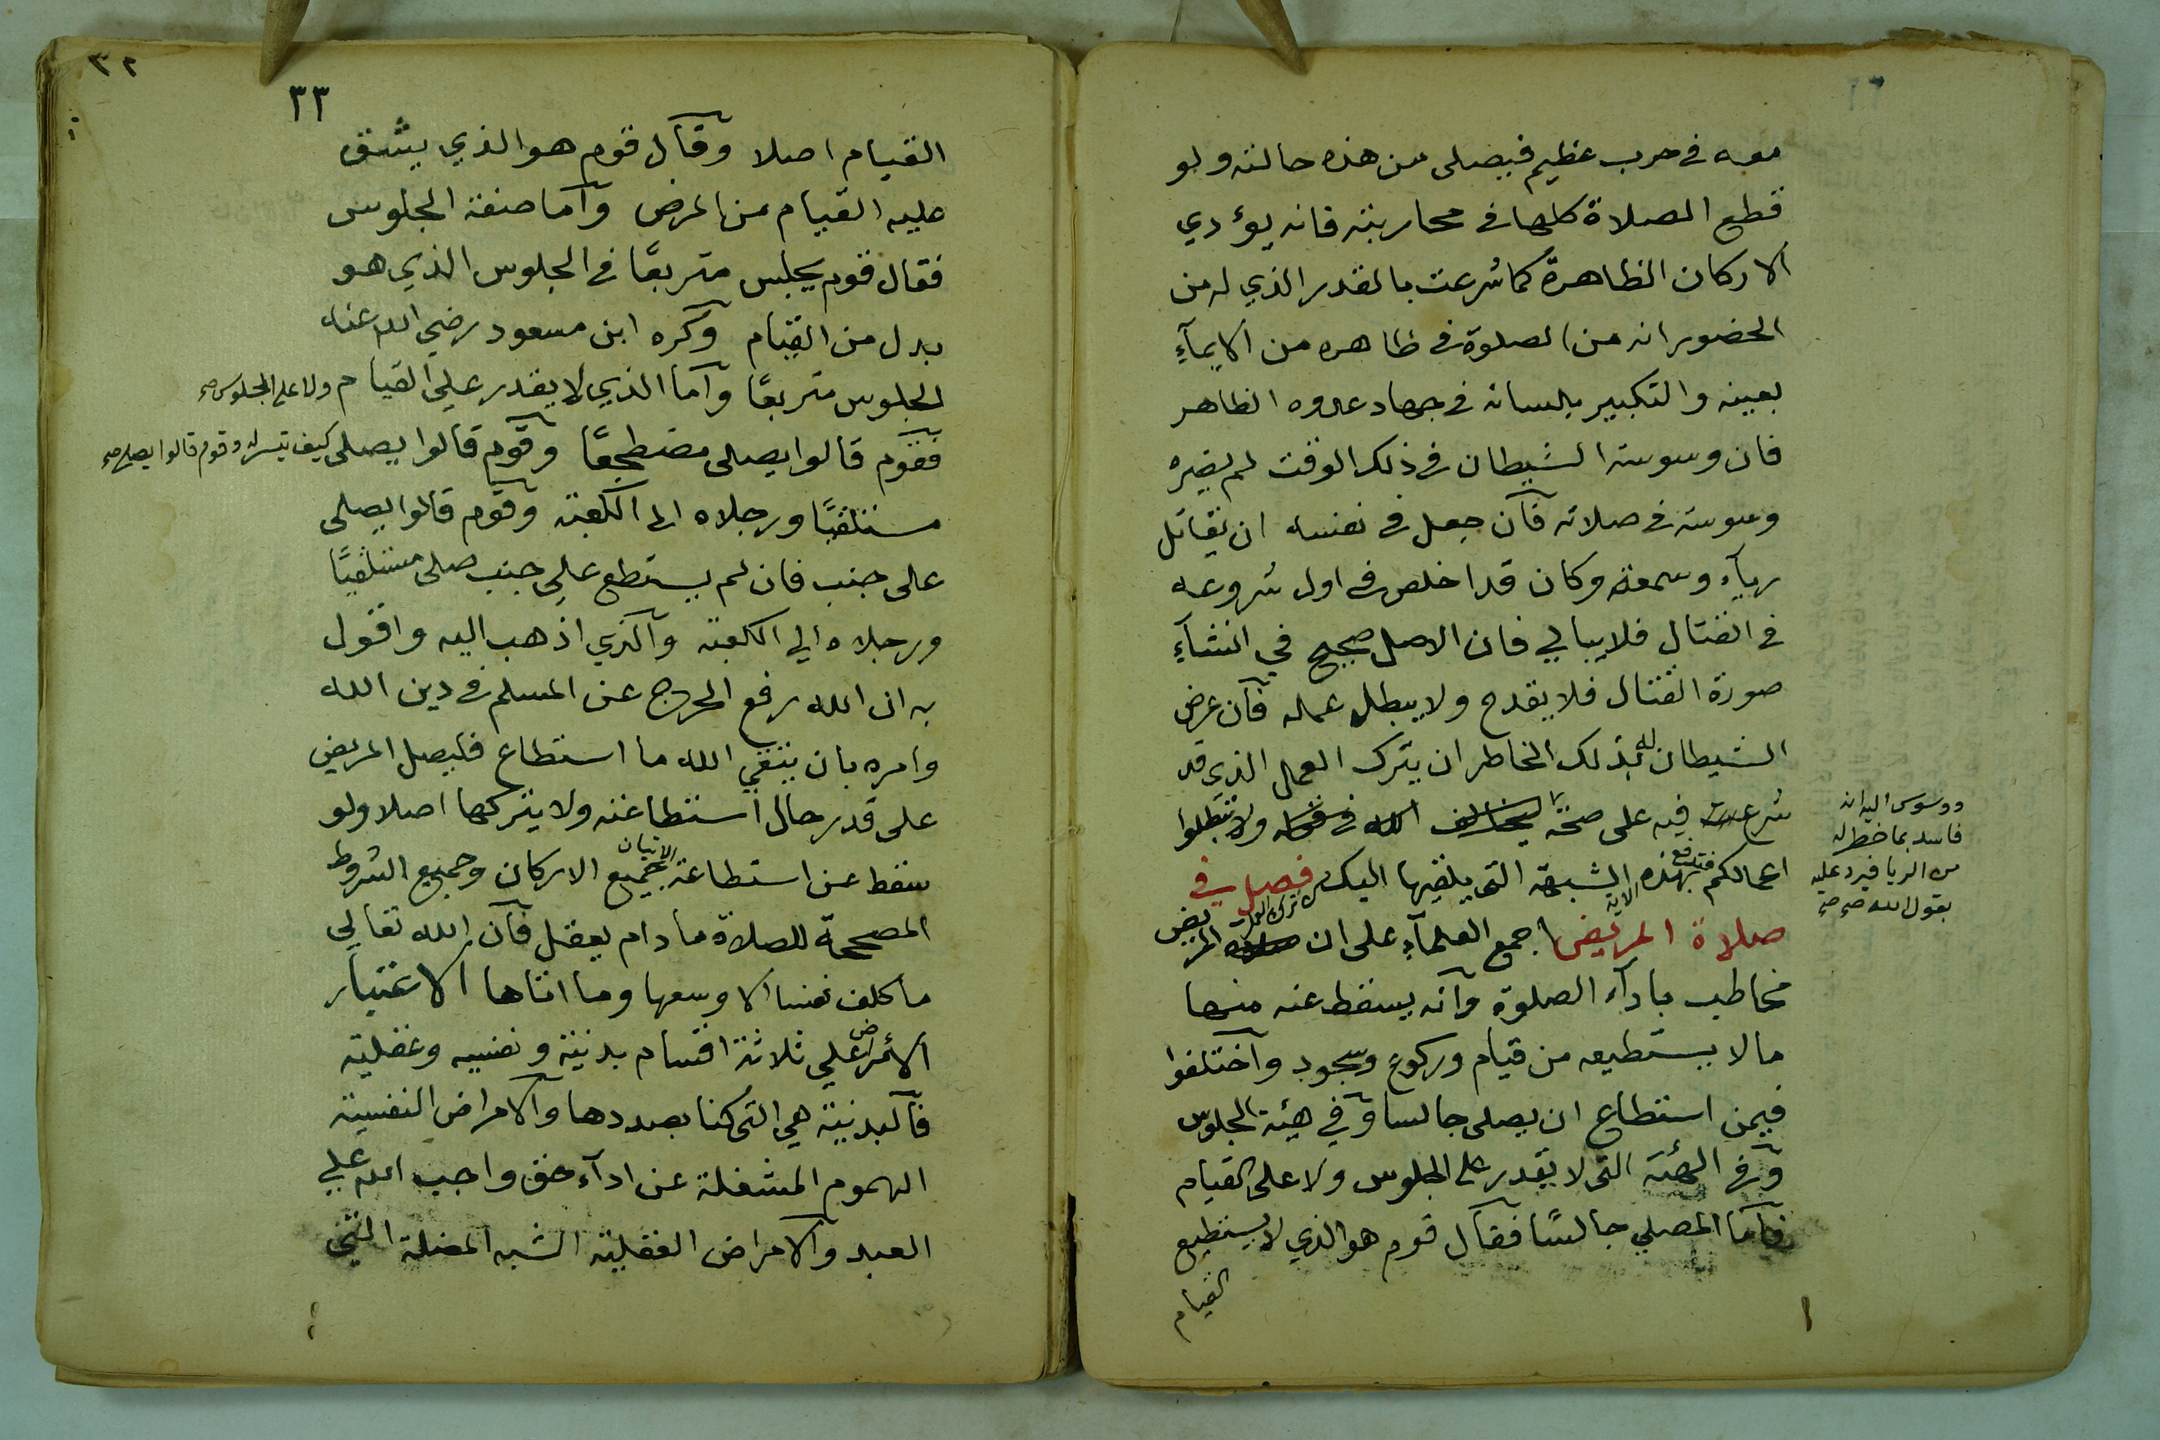 معه في حرب عظيم فيصلى من هذه حالته ولو
قطع الصلاة كلها في محاربته فانه يؤدي
الاركان الظاهرة كما شرعت بالقدر الذي له من
الحضور انه من الصلوة في ظاهره من الايمآءِ
بعينه والتكبير بلسانه في جهاد عدوه الظاهر
فان وسوسة الشيطان في ذلك الوقت لم يضره
وسوسته في صلاته فآن جعل في نفسه ان يقاتل
ريآء وسمعة وكان قد اخلص في اول شروعه
في القتال فلا يبالي فان الاصل صحيح في انشآءِ
صورة القتال فلا يقدح ولا يبطل عمله فآن عرض
الشيطان له بذلك الخاطر ان يترك العمل الذي قد
شرع فيه على صحته ولا تبطلوا
اعمالكم الاية فتدفع بهذه الشبهة التى يلقيها اليك فصل في
صلاة المريض اجمع العلمآءِ على ان المريض
مخاطب بادآء الصلوة وآنه يسقط عنه منها
مالا يستطيعه من قيام وركوع وسجود وآختلفوا
فيمن استطاع ان يصلى جالسا وفي هيئة الجلوس
وفي الهئة التى لا يقدر على الجلوس ولا على القيام
فآما المصلي جالسًا فقآل قوم هو الذي لا يستطيع
القيام
ووسوس اليه انه
فاسد بما خطر له
من الريا فيرد عليه
بقول الله صح صح
٣٢
٣٣
القيام اصلا وقآل قوم هو الذي يشق
عليه القيام من المرض وآما صفة الجلوس
فقال قوم يجلس متربعًا في الجلوس الذي هو
بدل من القيام وكره ابن مسعود رضي الله عنه
الجلوس متربعًا وآما الذي لا يقدر علي القيام ولا على الجلوس صح
فقوم قالوا يصلى مضطجعًا وقوم قالوا يصلى كيف تيسر له وقوم قالوا يصلى صح
مستلقيًا ورجلاه الى الكعبة وقوم قالوا يصلى
على جنب فان لم يستطع علي جنب صلى مستلقيًا
ورجلاه الي الكعبة وآلذي اذهب اليه واقول
به ان الله رفع الحرج عن المسلم في دين الله
وامره بان يتقي الله ما استطاع فليصل المريض
على قدر حال استطاعته ولا يتركها اصلا ولو
سقط عن استطاعته الاتيان بجميع الاركان وجميع الشروط
المصححة للصلاة ما دام يعقل فآن الله تعالي
ما كلف نفسا الا وسعها وما اتاها الاعتبار
الأمراض علي ثلاثة اقسام بدنية ونفسيه وعقلية
فآلبدنية هي التى كنا بصددها وآلامراض النفسية
الهموم المشغلة عن ادآء حق واجب الله علي
العبد وآلامراض العقلية الشبه المضلة التي